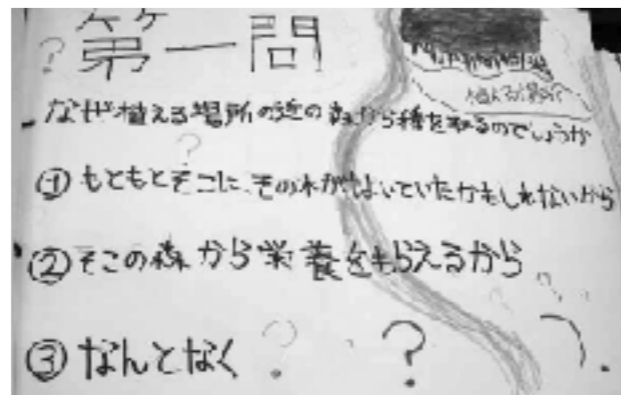 第一問
植える場所
なぜ植える場所の近の森から種を取るのでしょうか
① もともとそこに、その木がはいていたかもしれないから
② そこの森から栄養をもらえるから
③ なんとなく